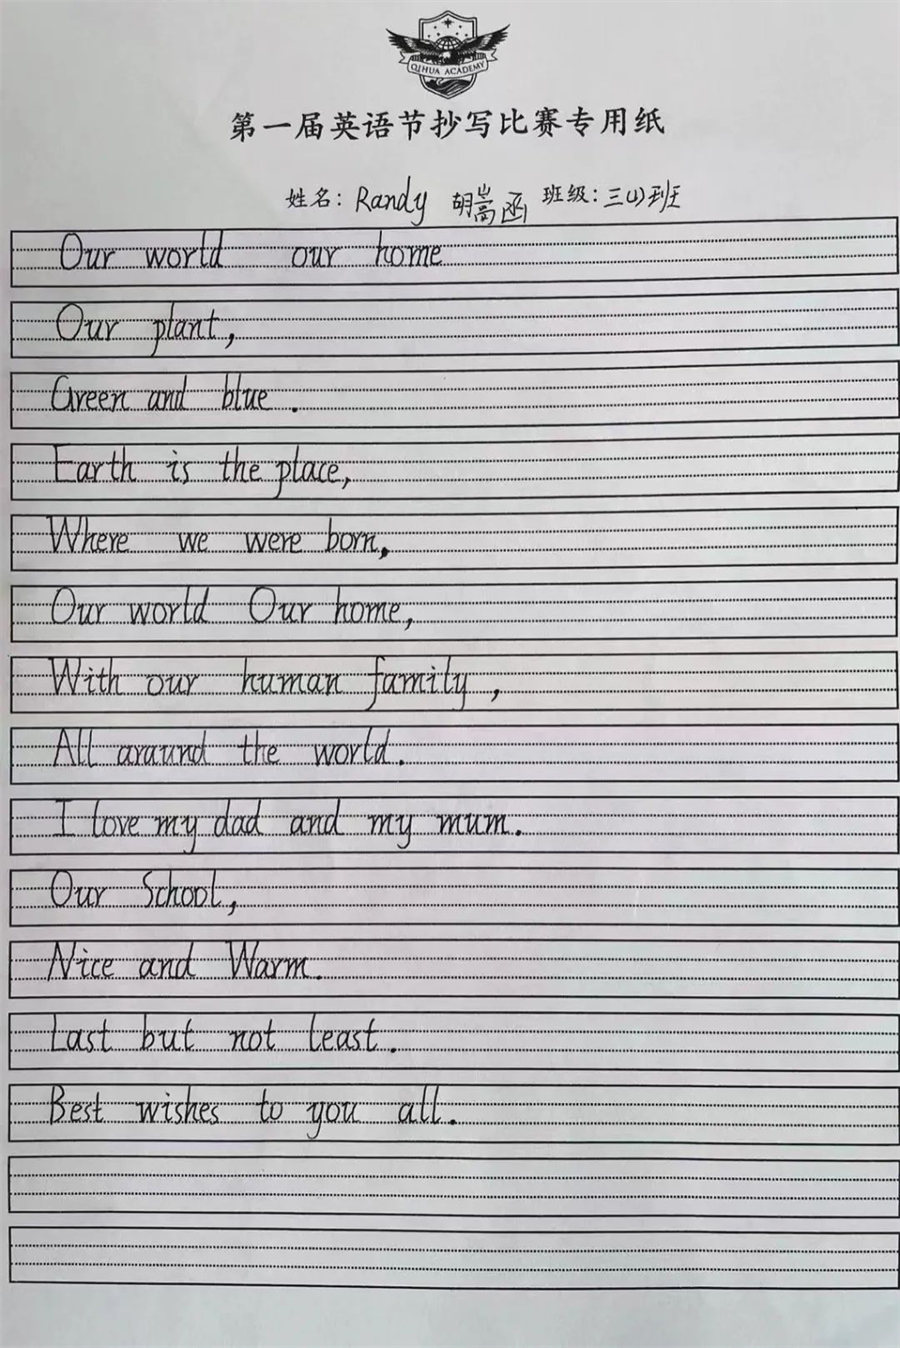 QIHUA ACADEMY
第一届英语节抄写比赛专用纸
姓名: Randy 胡嵩函 班级: 三(1)班
Our world our home
Our plant,
Green and blue.
Earth is the place,
Where we were born,
Our world Our home,
With our human family,
All araund the world.
I love my dad and my mum.
Our School,
Nice and Warm.
Last but not least.
Best wishes to you all.